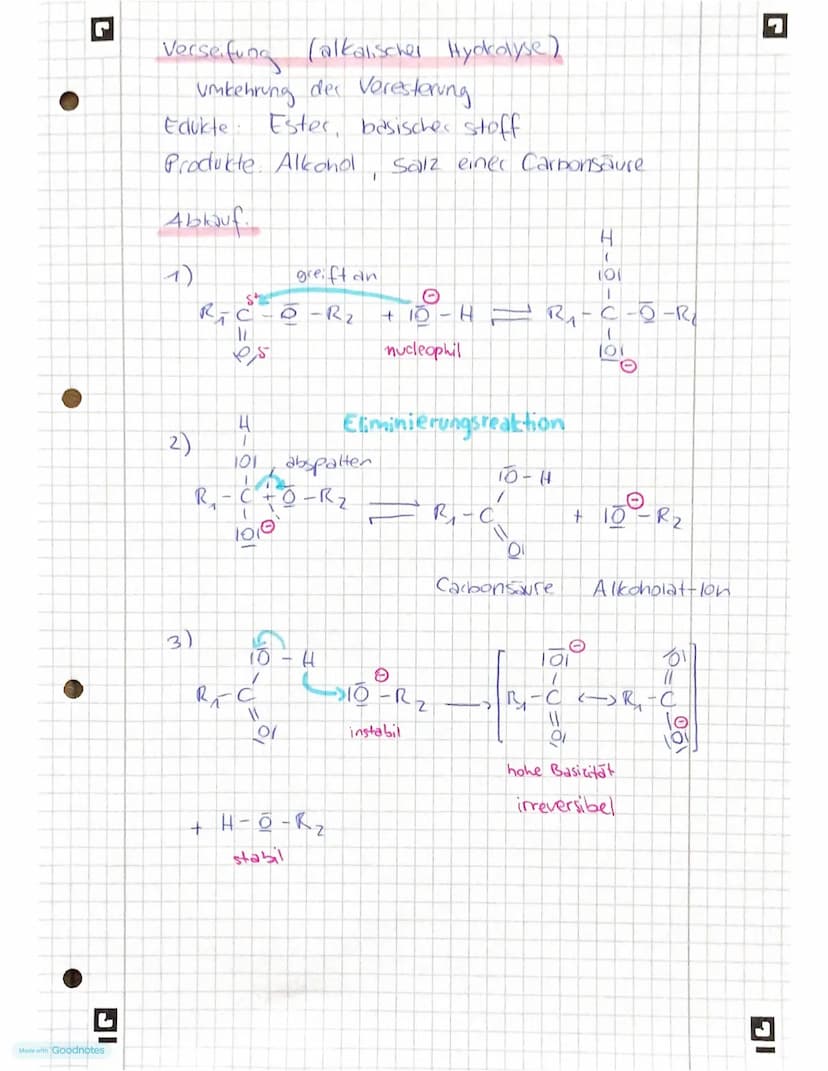 Verseifung (alkalischer Hydrolyse)
Umkehrung der Veresterung
Edukte: Ester, basischer Stoff
Produkte: Alkohol, Salz einer Carbonsäure
Ablauf:
1)
greift an
H
|
|O|
|
R₁-C-O-R₂ + |O⊖-H ⇌ R₁-C-O-R₂
δ+
||
O δ-
nucleophil
|O|⊖
Eliminierungsreaktion
2)
H
|
|O| abspalten
|O-H
R₁-C-O-R₂ ⇌ R₁-C + |O⊖-R₂
|O|⊖
O|
Carbonsäure Alkoholat-Ion
3)
|O-H
|O|⊖ O|
R₁-C |O⊖-R₂ → [R₁-C ↔ R₁-C]
O| instabil O| |O|⊖
hohe Basizität
irreversibel
+ H-O-R₂
stabil
Made with Goodnotes